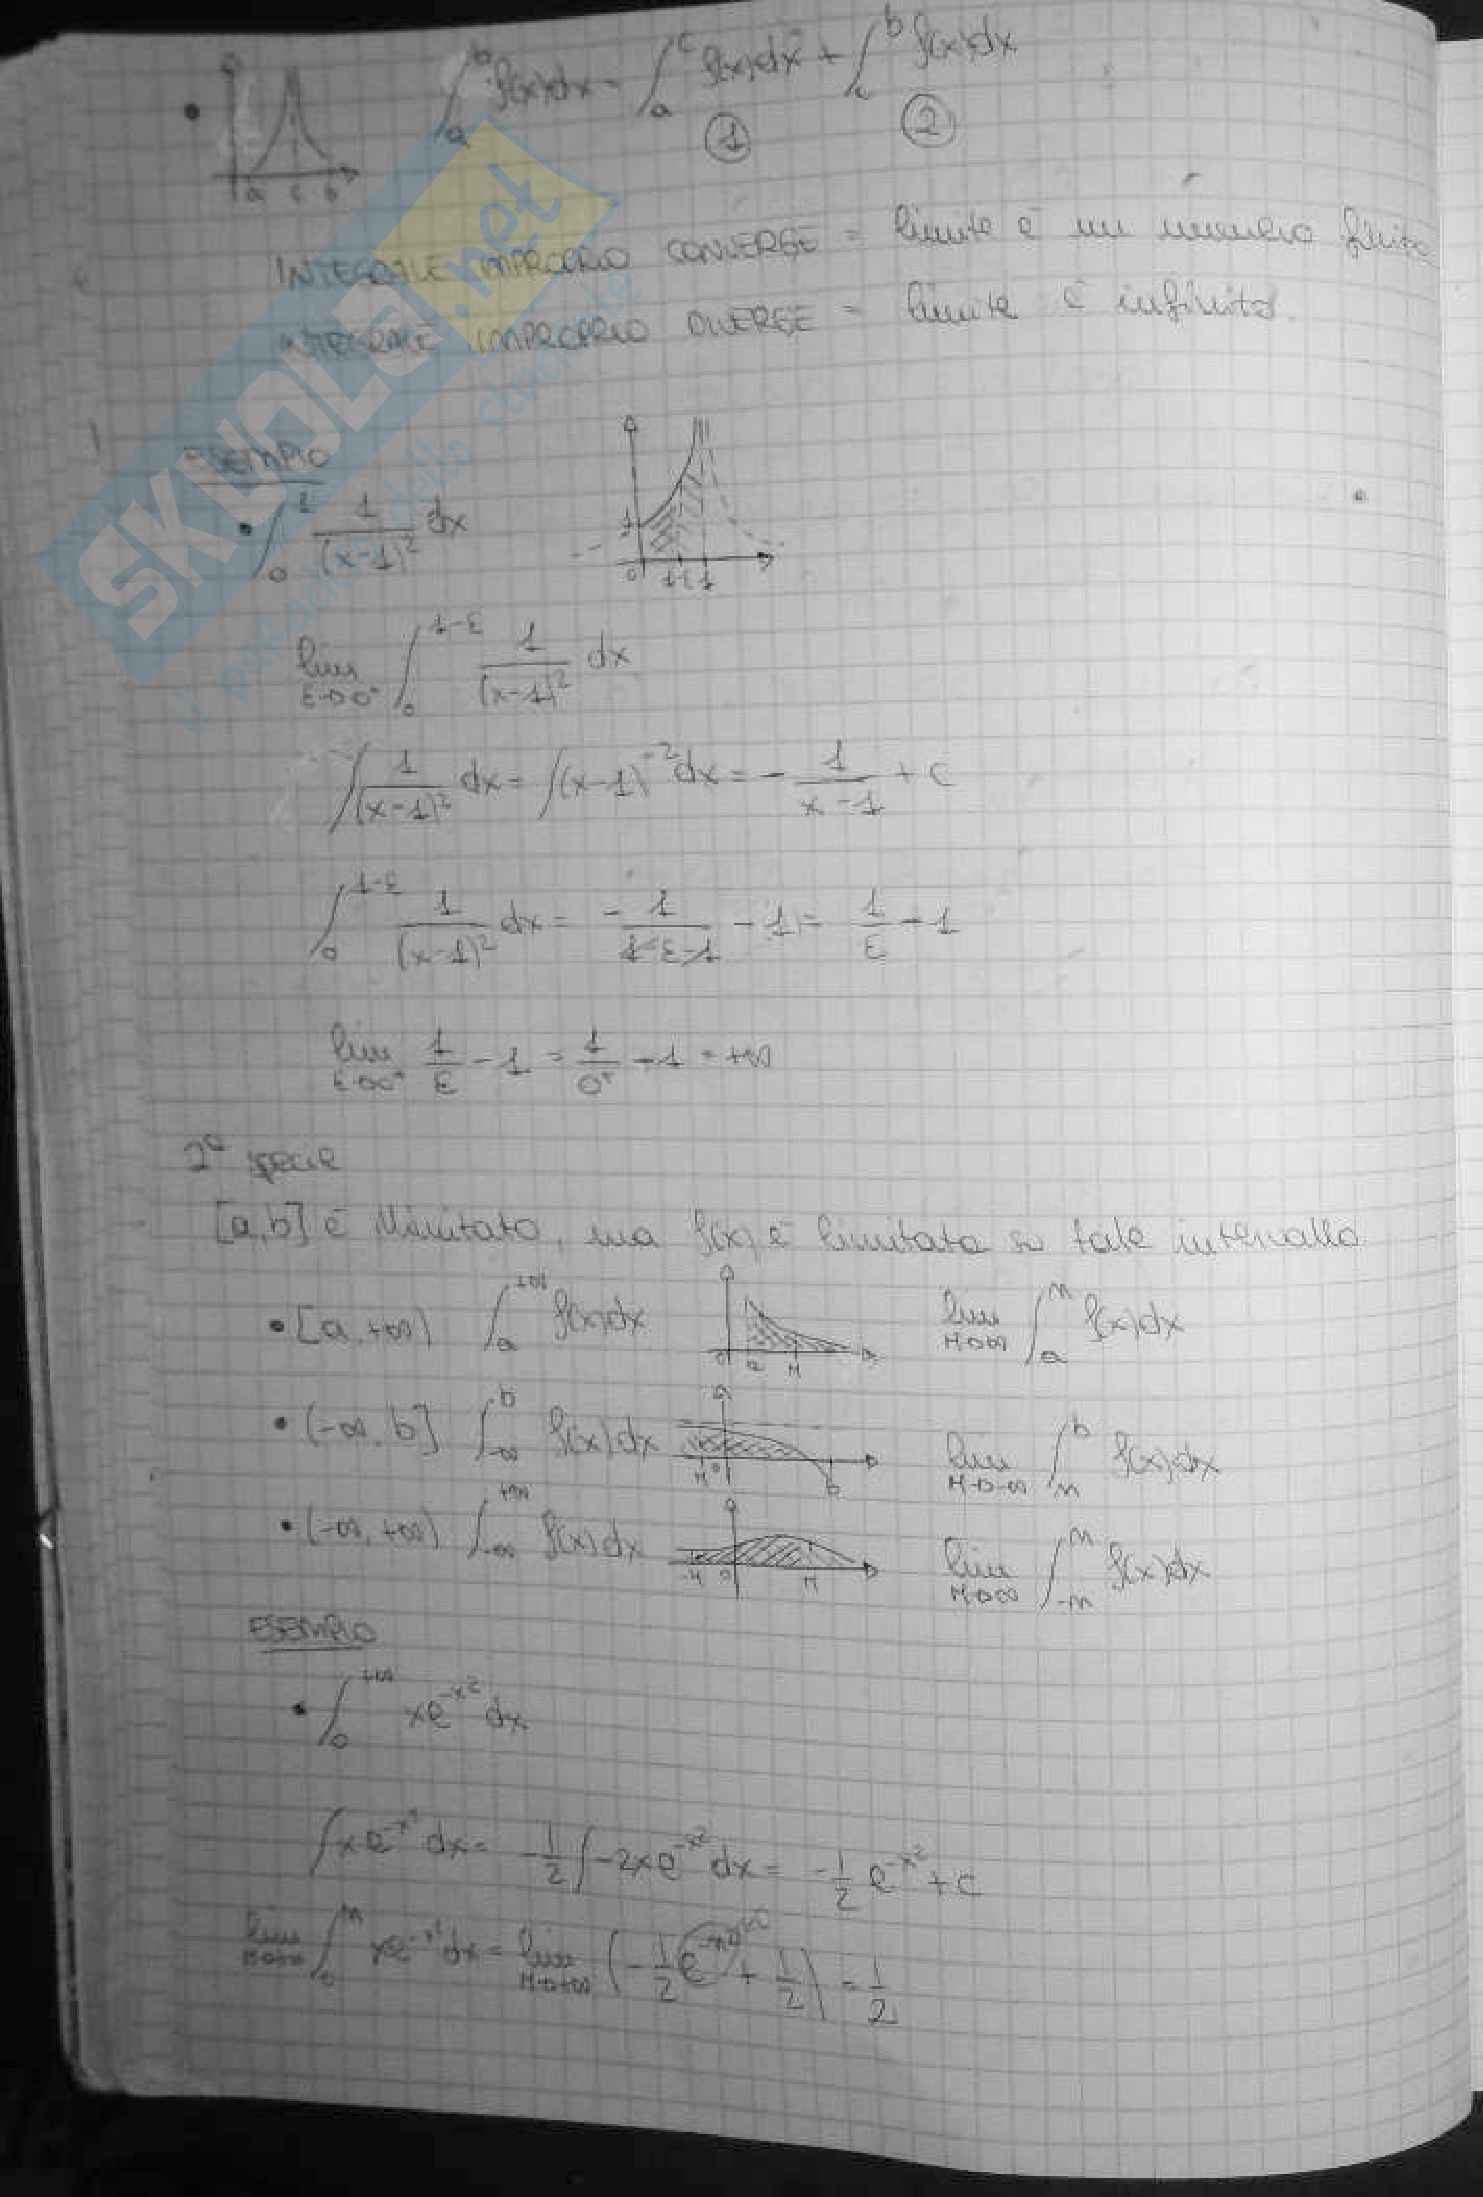 • a c b ∫_a^b f(x)dx = ∫_a^c f(x)dx + ∫_c^b f(x)dx
① ②
INTEGRALE IMPROPRIO CONVERGE = limite è un numero finito
INTEGRALE IMPROPRIO DIVERGE = limite è infinito.
SKUOLA.net
ESEMPIO
• ∫_0^1 1/(x-1)² dx
1 0 1-ε 1
lim ε→0⁺ ∫_0^{1-ε} 1/(x-1)² dx
∫ 1/(x-1)² dx = ∫(x-1)^{-2} dx = - 1/(x-1) + c
∫_0^{1-ε} 1/(x-1)² dx = - 1/(1-ε-1) - 1 = 1/ε - 1
lim ε→0⁺ 1/ε - 1 = 1/0⁺ - 1 = +∞
2ª specie
[a,b] è illimitato, ma f(x) è limitata su tale intervallo
• [a,+∞) ∫_a^{+∞} f(x)dx 0 a M lim M→∞ ∫_a^M f(x)dx
• (-∞,b] ∫_{-∞}^b f(x)dx M 0 b lim M→-∞ ∫_M^b f(x)dx
• (-∞,+∞) ∫_{-∞}^{+∞} f(x)dx -M 0 M lim M→∞ ∫_{-M}^M f(x)dx
ESEMPIO
• ∫_0^{+∞} xe^{-x²} dx
∫xe^{-x²} dx = -1/2 ∫-2xe^{-x²} dx = -1/2 e^{-x²} + c
lim M→+∞ ∫_0^M xe^{-x²} dx = lim M→+∞ (-1/2 e^{-M²} + 1/2) = 1/2